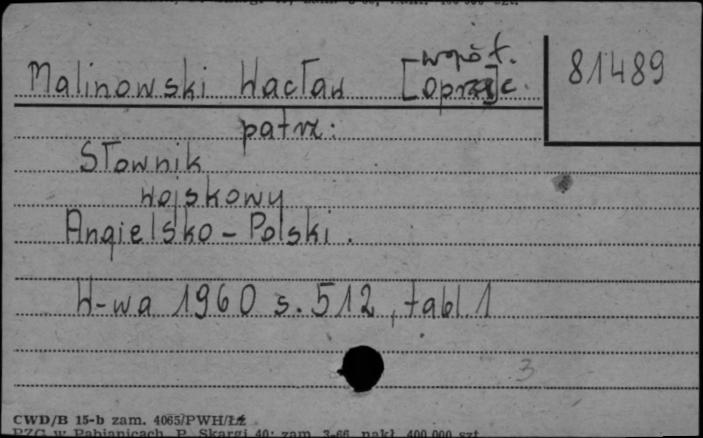 Malinowski Wacław [współ. oprac]
81489
patrz:
Słownik
Wojskowy
Angielsko - Polski.
W-wa 1960 s. 512, tabl. 1
3
CWD/B 15-b zam. 4065/PWH/ŁŻ
PZG w Pabianicach, P. Skargi 40; zam. 3-66, nakł. 400 000 szt.